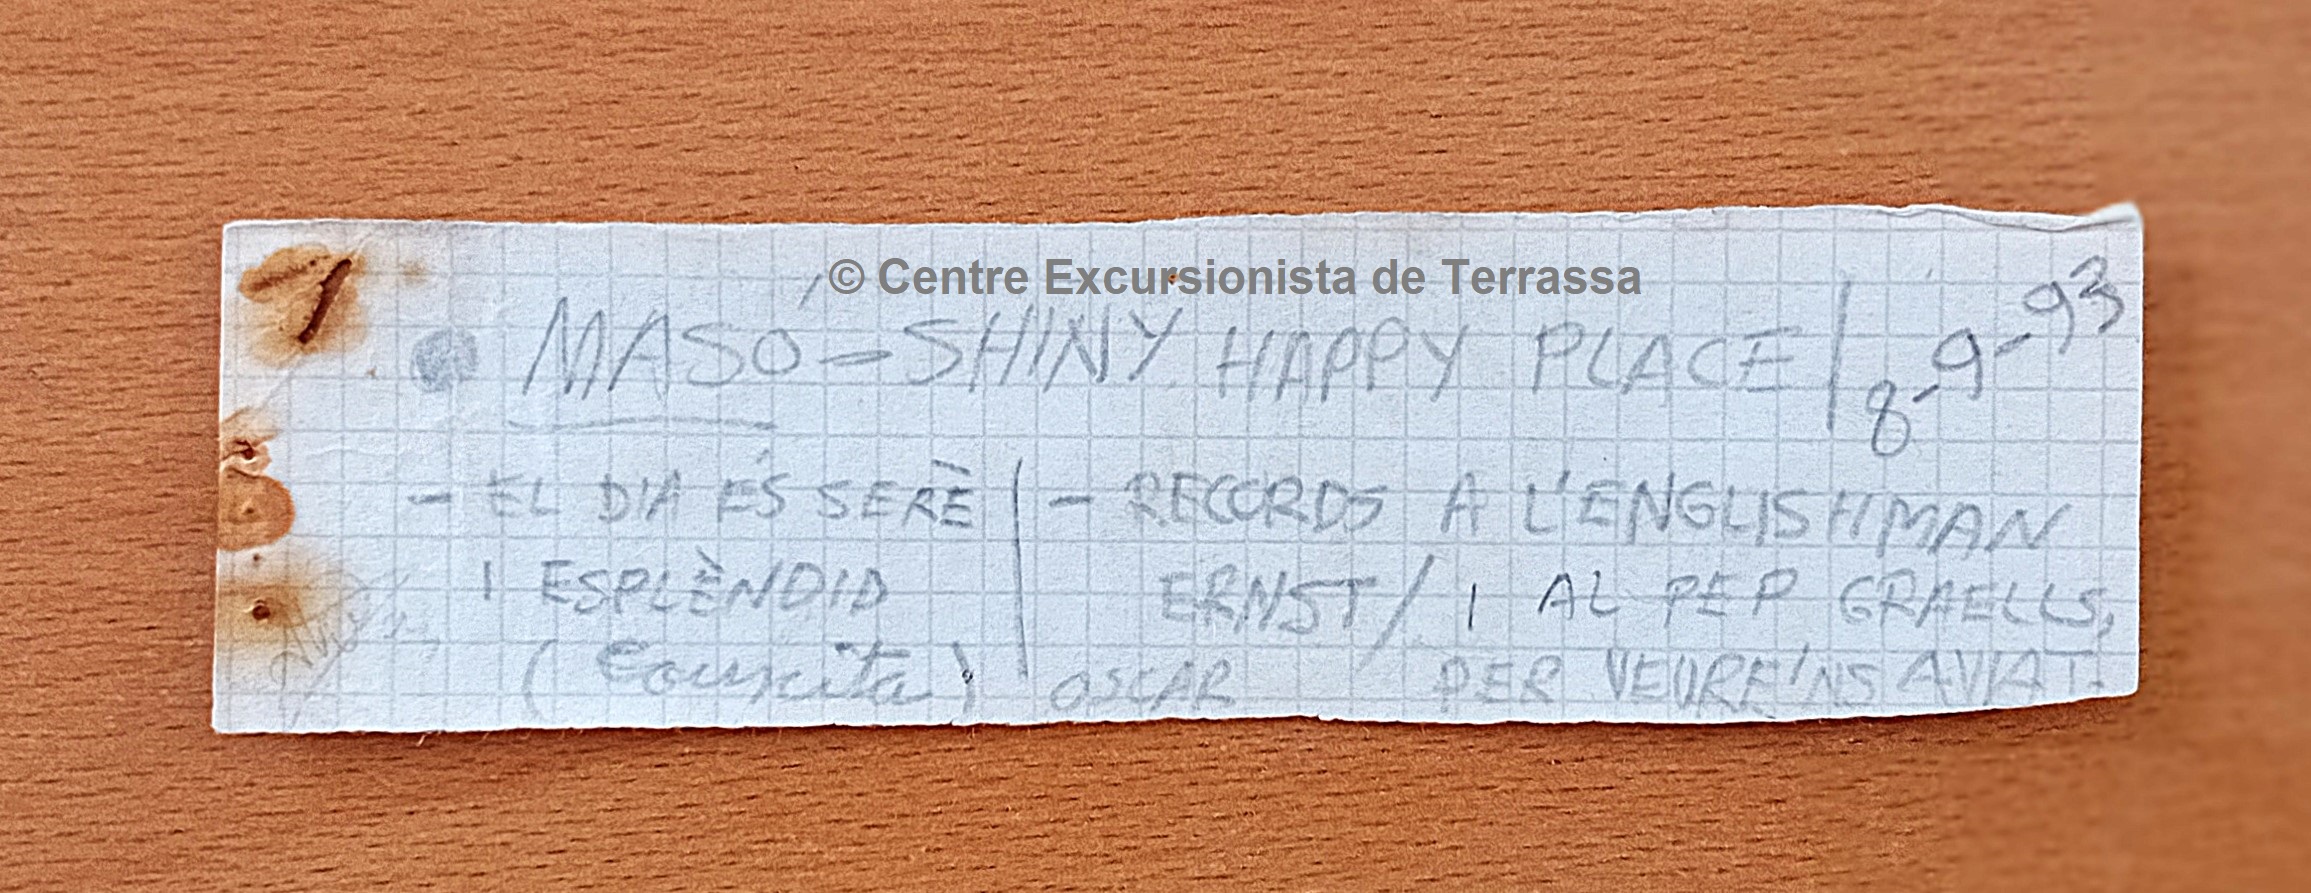 © Centre Excursionista de Terrassa
MASÓ - SHINY HAPPY PLACE | 8-9-93
- EL DIA ÉS SERÈ
I ESPLÈNDID
- RECORDS A L'ENGLISHMAN
ERNST / I AL PEP GRAELLS,
OSCAR PER VEURE'NS AVIAT.